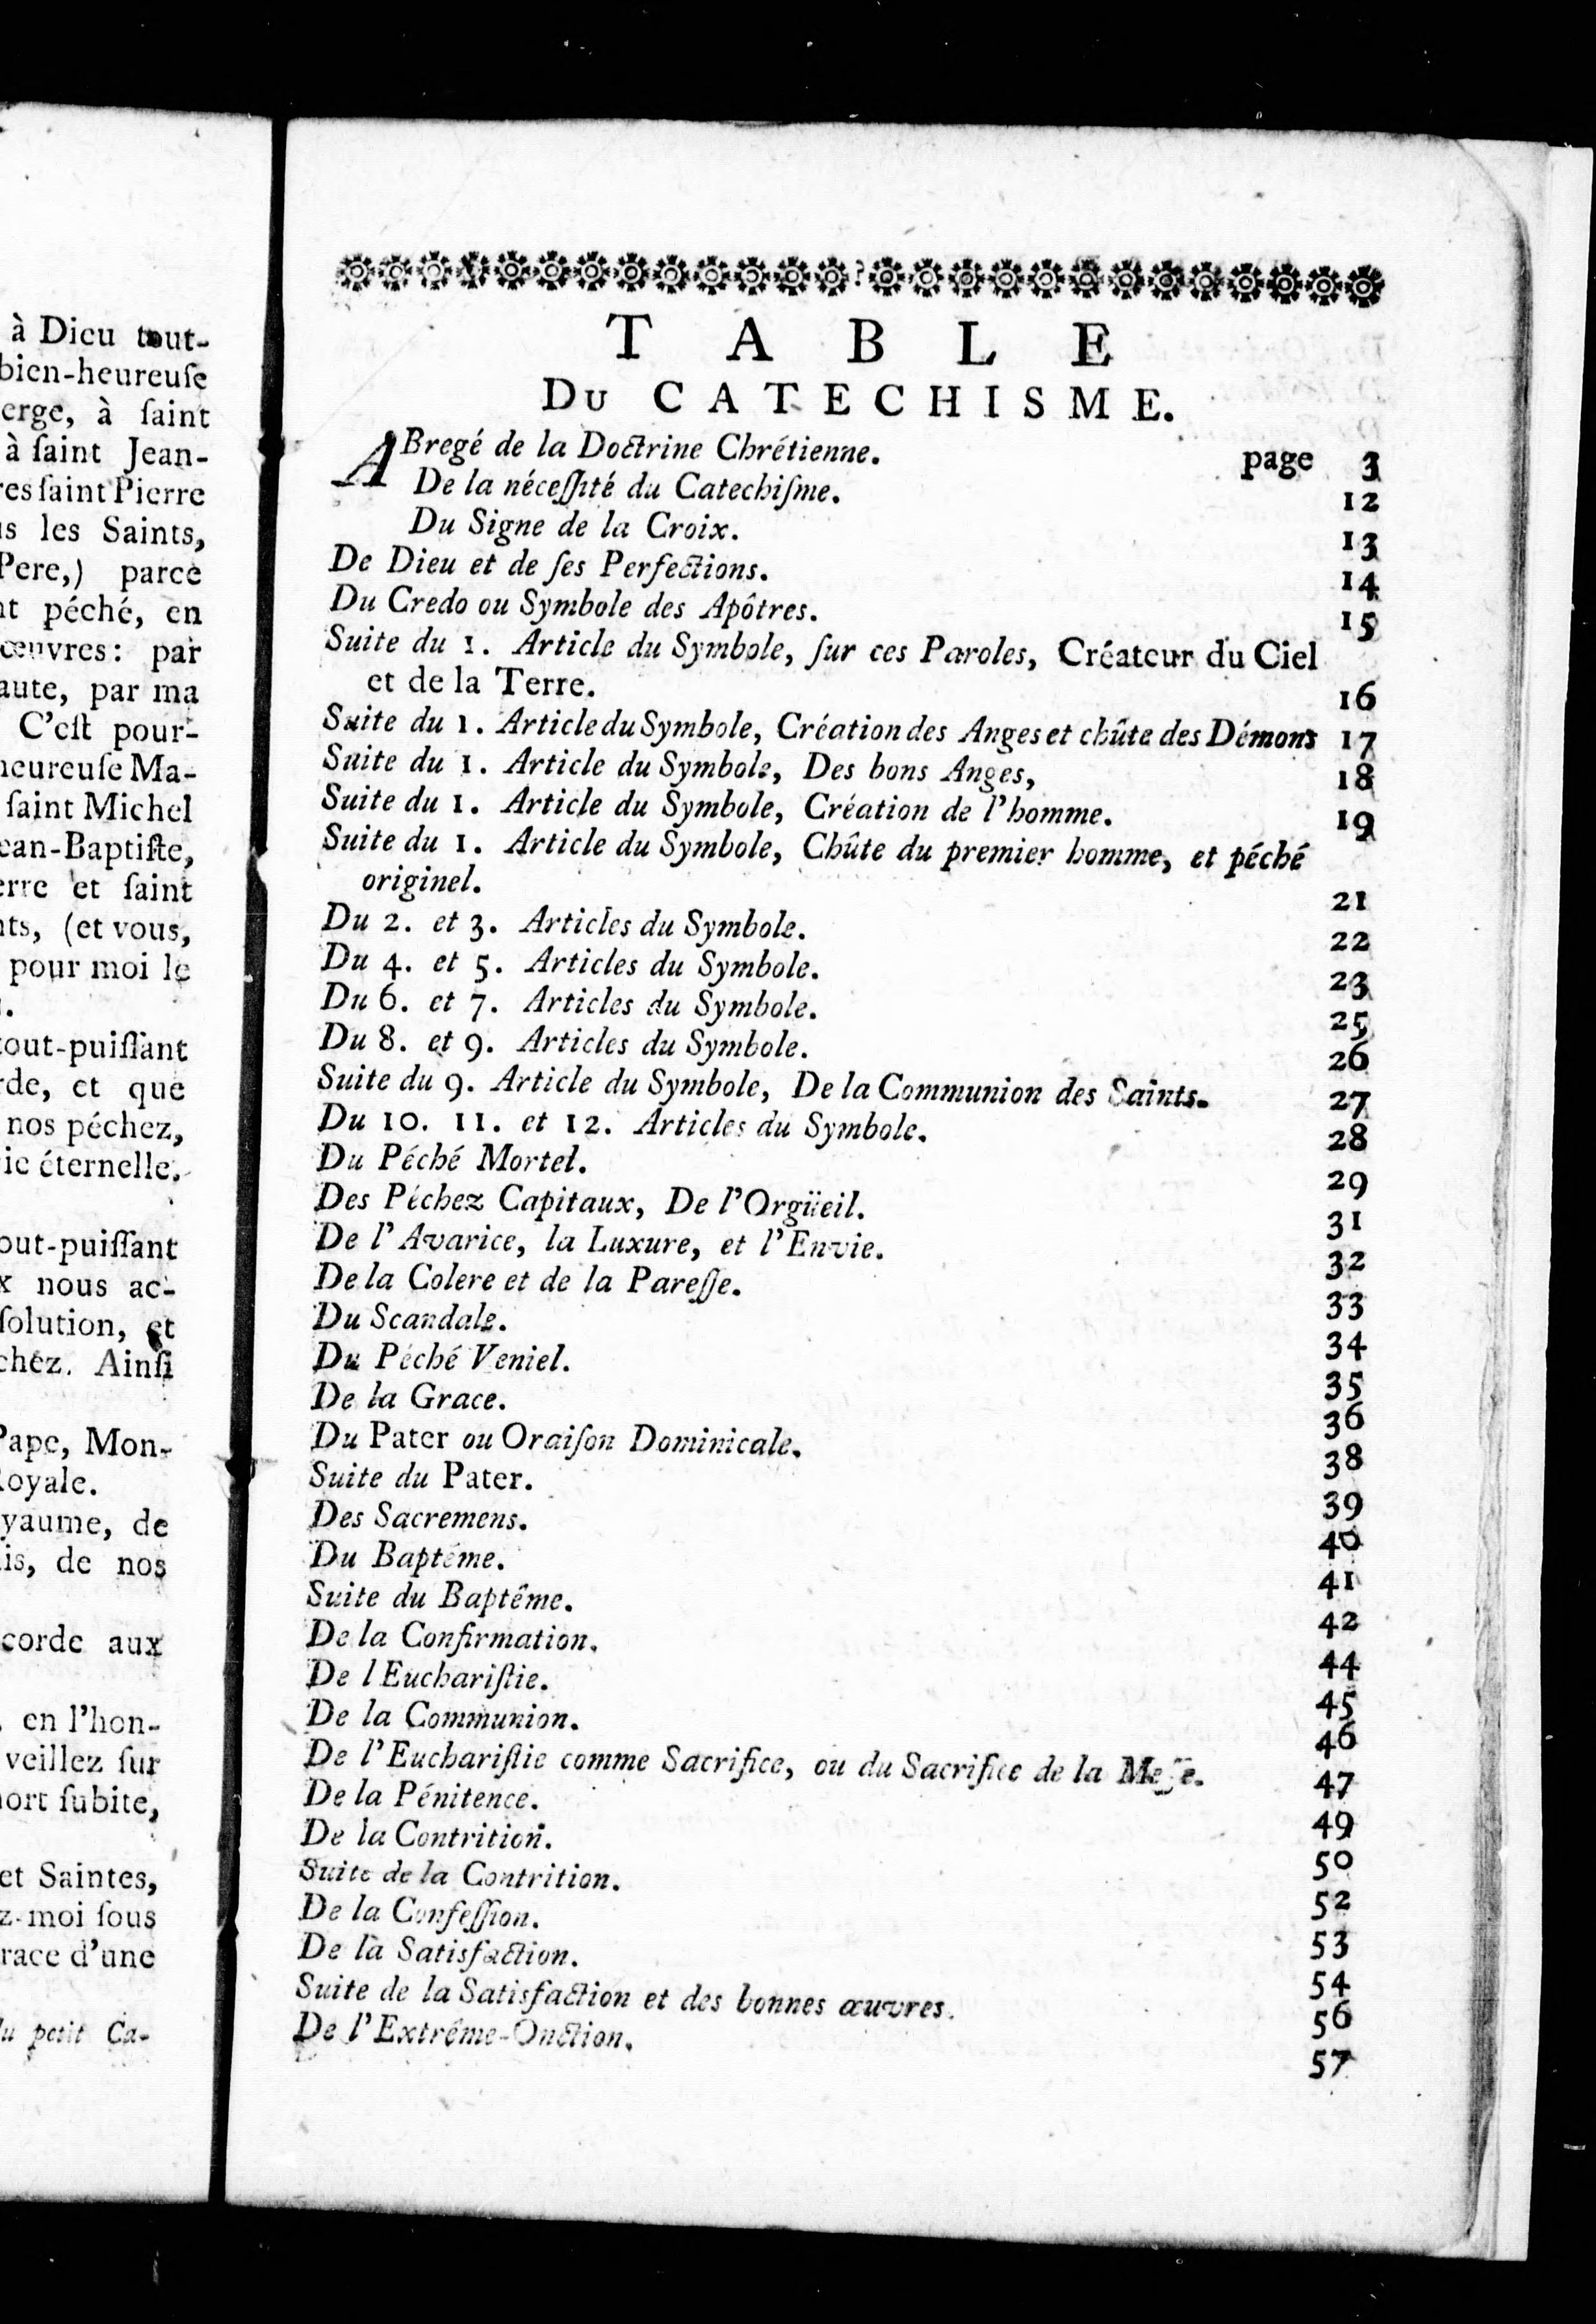 à Dieu tout-
bien-heureuſe
erge, à ſaint
à ſaint Jean-
res ſaint Pierre
s les Saints,
Pere,) parce
nt péché, en
œuvres: par
aute, par ma
C'eſt pour-
heureuſe Ma-
ſaint Michel
ean-Baptiſte,
erre et ſaint
nts, (et vous,
pour moi le
tout-puiſſant
rde, et que
nos péchez,
ie éternelle.
out-puiſſant
x nous ac-
ſolution, et
chez. Ainſi
Pape, Mon-
Royale.
yaume, de
is, de nos
corde aux
en l'hon-
veillez ſur
mort ſubite,
et Saintes,
z-moi ſous
race d'une
du petit Ca-
TABLE
DU CATECHISME.
ABregé de la Doctrine Chrétienne. page 3
De la néceſſité du Catechiſme. 12
Du Signe de la Croix. 13
De Dieu et de ſes Perfections. 14
Du Credo ou Symbole des Apôtres. 15
Suite du 1. Article du Symbole, ſur ces Paroles, Créateur du Ciel
et de la Terre. 16
Suite du 1. Article du Symbole, Création des Anges et chûte des Démons 17
Suite du 1. Article du Symbole, Des bons Anges, 18
Suite du 1. Article du Symbole, Création de l'homme. 19
Suite du 1. Article du Symbole, Chûte du premier homme, et péché
originel. 21
Du 2. et 3. Articles du Symbole. 22
Du 4. et 5. Articles du Symbole. 23
Du 6. et 7. Articles du Symbole. 25
Du 8. et 9. Articles du Symbole. 26
Suite du 9. Article du Symbole, De la Communion des Saints. 27
Du 10. 11. et 12. Articles du Symbole. 28
Du Péché Mortel. 29
Des Péchez Capitaux, De l'Orgüeil. 31
De l'Avarice, la Luxure, et l'Envie. 32
De la Colere et de la Pareſſe. 33
Du Scandale. 34
Du Péché Veniel. 35
De la Grace. 36
Du Pater ou Oraiſon Dominicale. 38
Suite du Pater. 39
Des Sacremens. 40
Du Baptême. 41
Suite du Baptême. 42
De la Confirmation. 44
De l Euchariſtie. 45
De la Communion. 46
De l'Euchariſtie comme Sacrifice, ou du Sacrifice de la Meſſe. 47
De la Pénitence. 49
De la Contrition. 50
Suite de la Contrition. 52
De la Confeſſion. 53
De la Satisfaction. 54
Suite de la Satisfaction et des bonnes œuvres. 56
De l'Extrême-Onction. 57